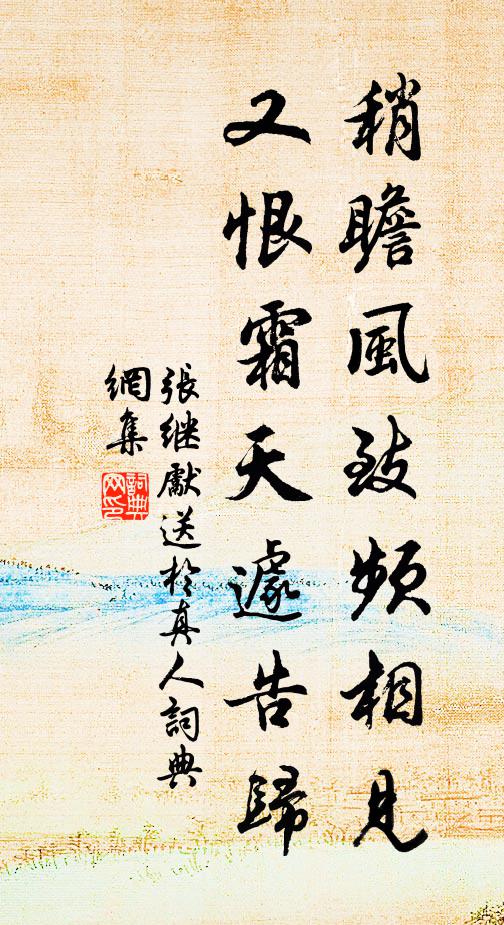 稍瞻風致頻相見
又恨霜天遽告歸
張継獻送於真人詞典
網集
詞典
网印